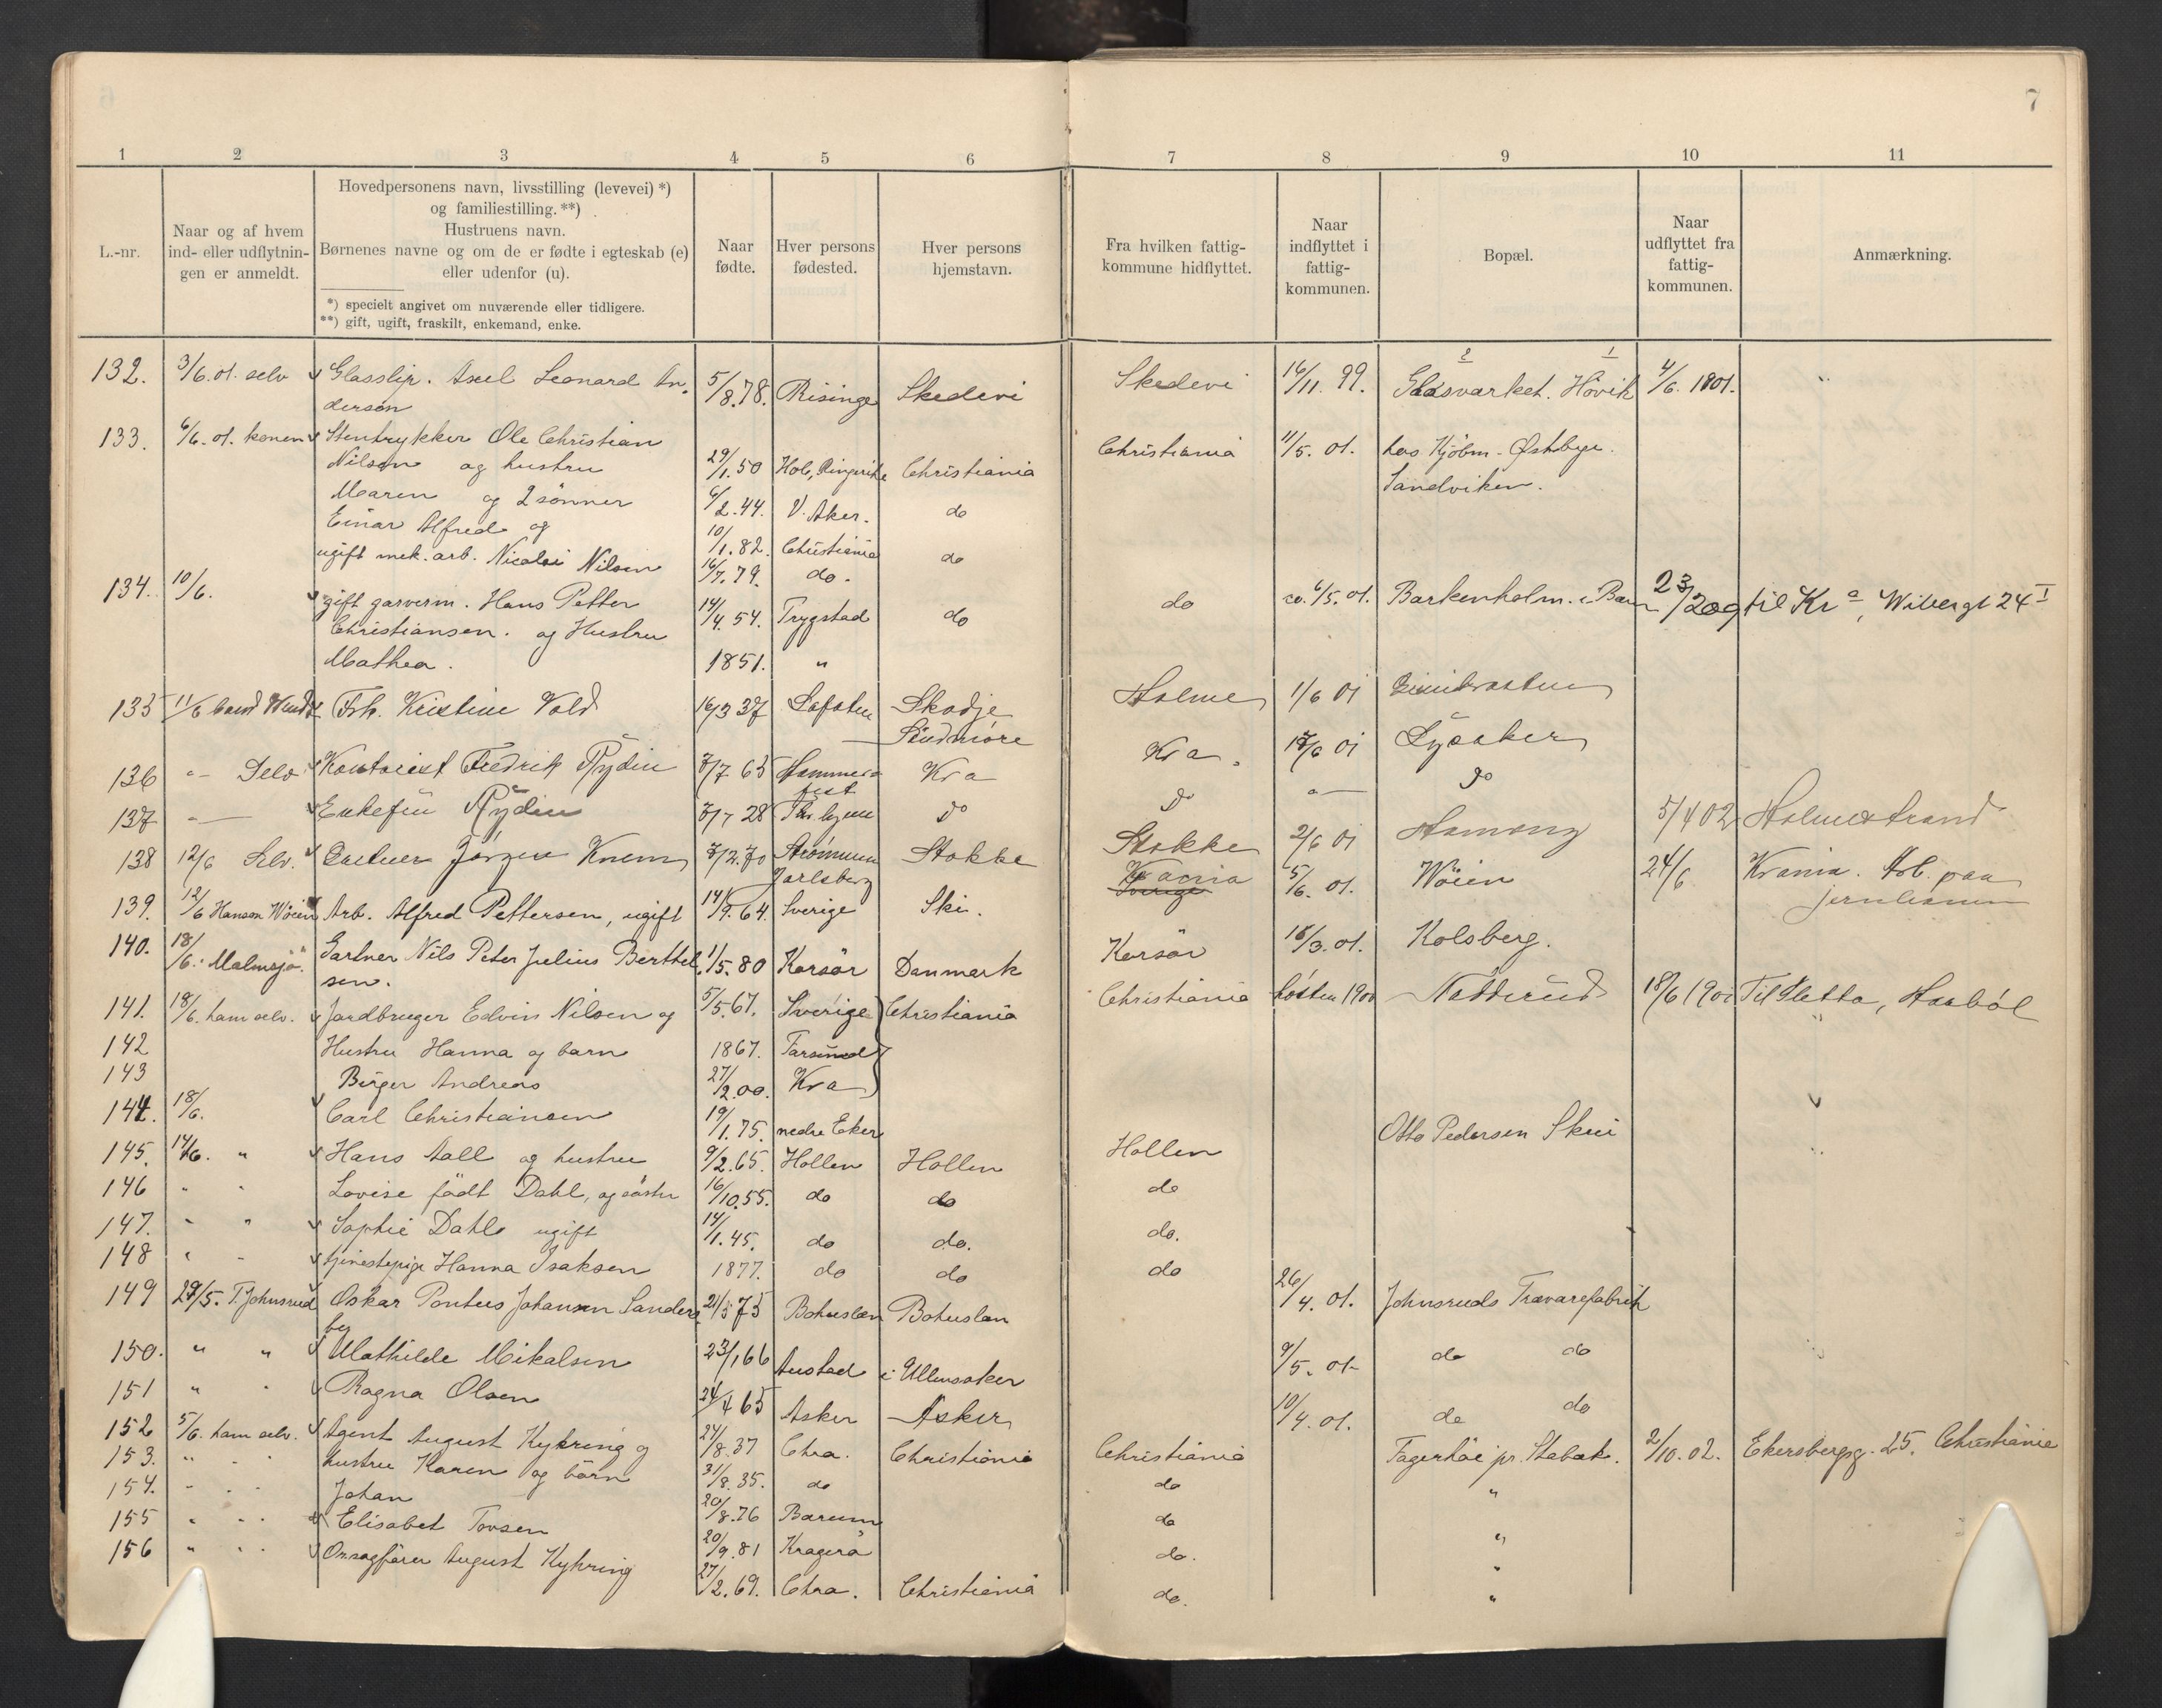 7
1 2 3 4 5 6 7 8 9 10 11
L.-nr.
Naar og af hvem
ind- eller udflytnin-
gen er anmeldt.
Hovedpersonens navn, livsstilling (levevei) *)
og familiestilling. **)
Hustruens navn.
Børnenes navne og om de er fødte i egteskab (e)
eller udenfor (u).
*) specielt angivet om nuværende eller tidligere.
**) gift, ugift, fraskilt, enkemand, enke.
Naar
fødte.
Hver persons
fødested.
Hver persons
hjemstavn.
Fra hvilken fattig-
kommune hidflyttet.
Naar
indflyttet i
fattig-
kommunen.
Bopæl.
Naar
udflyttet fra
fattig-
kommunen.
Anmærkning.
132. 3/6.01. selv Glasslip. Axel Leonard An- 5/8.78. Risinge Skedevi Skedevi 16/11.99. Glasværket. Hövik 4/6.1901.
derson
133. 6/6.01. konen Stentrykker Ole Christian Christiania 11/5.01. hos Kjöbm. Østbye.
Nilsen og hustru 29/1.50 Hole, Ringerike Christiania Sandviken.
Maren og 2 sönner 6/2.44. V. Aker. do
Einar Alfred og 10/1.82. Christiania do
ugift mek. arb. Nicolai Nilsen 16/7.79. do.
134. 10/6. gift garverm. Hans Petter 14/4.54. Trygstad do do ca. 6/5.01. Barkenholm. i Bær 23/209 til Kra, Wibergt 24 I
Christiansen. og Hustru
Mathea. 1851. "
135 11/6 Frk. Kristine Vold 16/3 37 Skodje Holme 1/6 01
Söndmöre
136 " Selv Kontorist Fredrik Rydin 7/7 65 Hammer- Kra Kra. Lysaker
fest
137 " Enkefru Rydin 28 do do " do
138 12/6 Selv. Gartner Jörgen Knem 7/2.70 Strömmen Stokke Stokke 2/6 01 5/4 02 Holmestrand
Jarlsberg
139. 12/6 Hanson Wöien Arb. Alfred Pettersen, ugift 14/9.64. Sverige Ski. Kra 5/6.01. Wöien 24/6 Krania. Arb. paa
jernbanen
140. 18/6. Malmsjö. Gartner Nils Peter Julius Berthel- 1/5.80 Korsör Danmark Korsör 15/3.01. Kolsberg.
sen.
141. 18/6. ham selv. Jordbruger Edvin Nilsen og 5/5.67. Sverige Christiania Christiania hösten 1900 Nadderud 18/6 1901 Til Sletta, Haaböl
142 Hustru Hanna og barn 1867. Farsund
143 Birger Andreas 27/2.00. Kra
144. 18/6. Carl Christiansen 19/1.75. nedre Eker Otto Pedersen Skui
145. 14/6. " Hans Aall og hustru 9/2.65. Hollen Hollen Hollen
146 " " Lovise födt Dahl, og söster 16/10.55. do do do
147. " " Sophie Dahl ugift 14/1.45. do do. do.
148 " " tjenestepige Hanna Isaksen 1877. do do do
149 29/5. T. Johnsrud Oskar Pontus Johansen Sanders- 21/5 75 Bohuslen Bohuslen 26/4.01. Johnsruds Trævarefabrik
by
150. " " Mathilde Mikalsen 23/1 66 Austad i Ullensaker 9/5.01. do do
151 " " Ragna Olsen 24/4 65 Asker Asker 10/4.01. do do
152 5/6. ham selv. Agent August Kyhring og 24/8.37 Chra. Christiania Christiania Fagerhöi pr. Stabæk. 2/10.02. Ekersbergsg. 25. Christiania
153. " " hustru Karen og börn 31/8.35. do do "
154. " " Johan 20/8.76 Bærum do "
155 " " Elisabet Tovsen 20/9.81 Kragerö do. "
156 " " Onsagförer August Kyhring 27/2.69. Chra. Christiania do. "